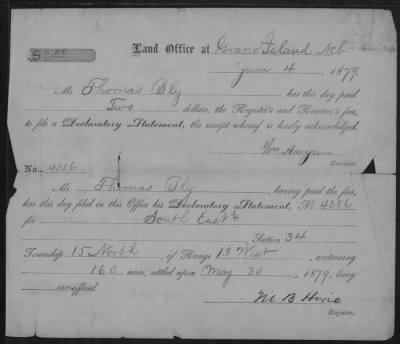 $2.00
Land Office at Grand Island Neb
June 4, 1879
Mr Thomas Bly has this day paid
Two dollars, the Register's and Receiver's fees,
to file a Declaratory Statement, the receipt whereof is hereby acknowledged.
Wm Anyan
Receiver.
No. 4386
Mr. Thomas Bly having paid the fees,
has this day filed in this Office his Declaratory Statement, No 4386
for South East ¼
Section 34
Township 15 North, of Range 13 West, containing
160 acres, settled upon May 30, 1879, being
unoffered.
M B Hoxie
Register.